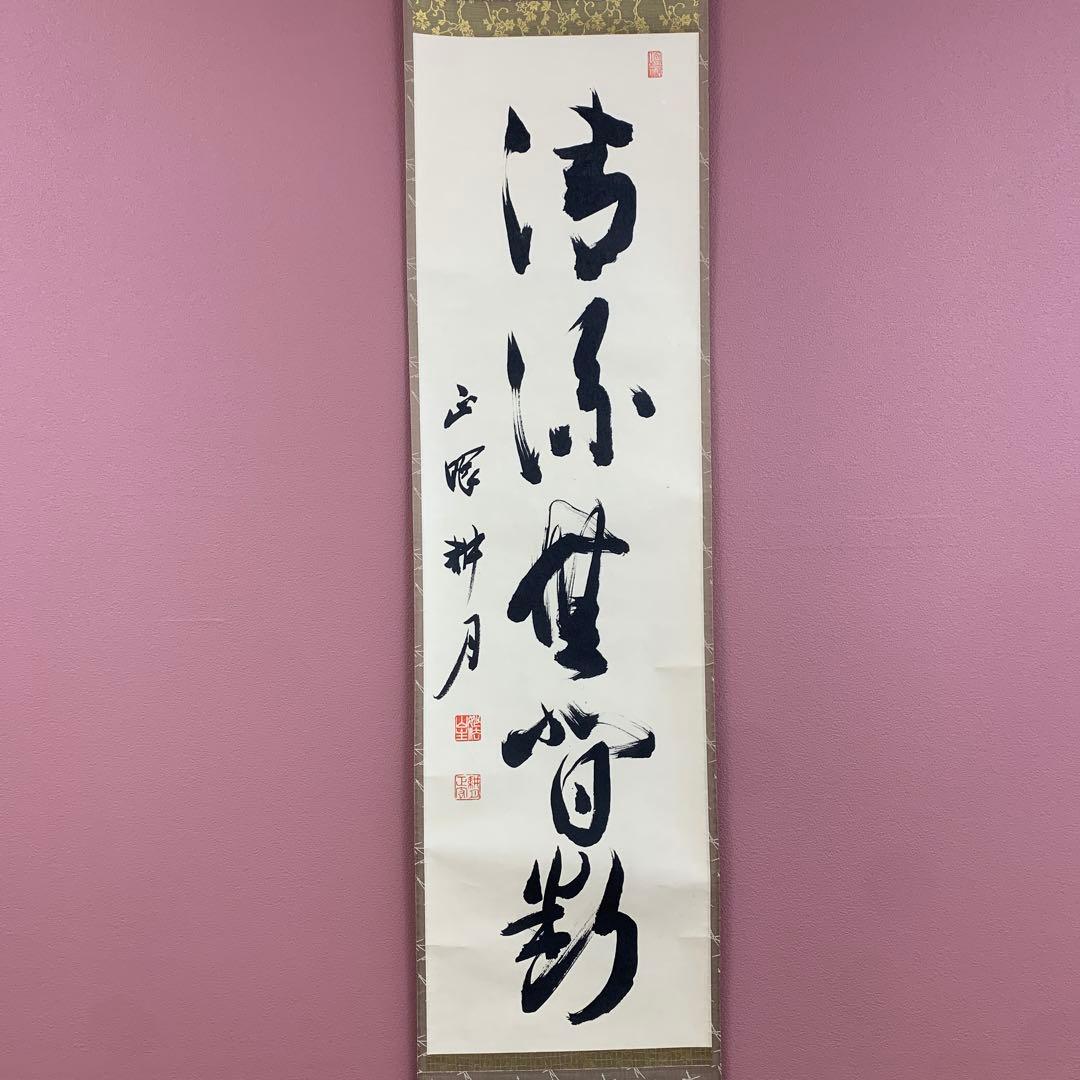 清流無間断
正眼耕月